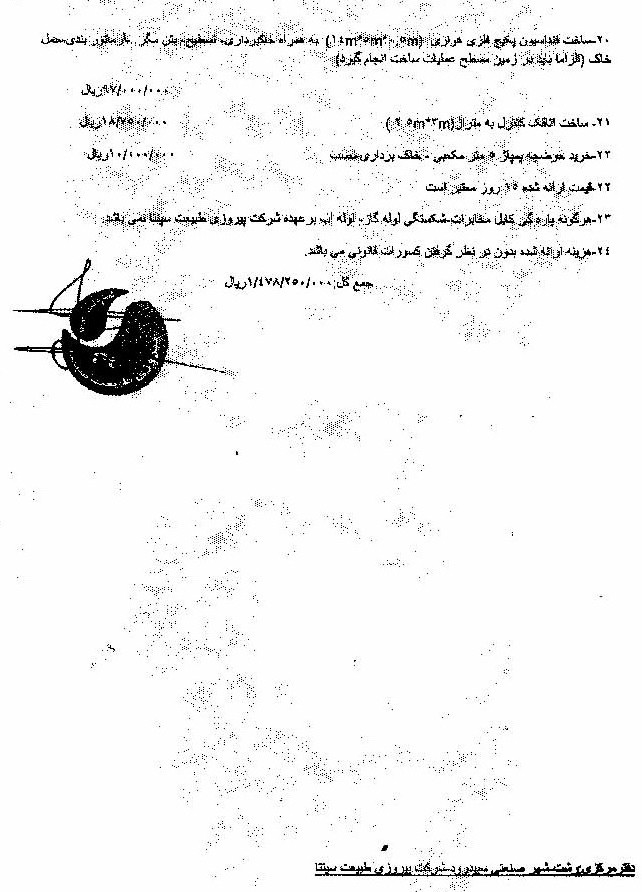 ۲۰-ساخت فنداسیون پکیج فلزی هوازی (۱۴m*۵m*۰,۵m) به همراه خاکبرداری، تسطیح، بتن مگر، آرماتور بندی-حمل
خاک (الزاما باید در زمین مسطح عملیات ساخت انجام گیرد)
۹۷/۰۰۰/۰۰۰ریال
۲۱- ساخت اتاقک کنترل به متراژ(۲,۵m*۳m) ۱۸/۷۵۰/۰۰۰ریال
۲۲-خرید حوضچه پمپاژ ۵ متر مکعبی - خاک برداری-نصب ۱۰/۰۰۰/۰۰۰ریال
۲۲-قیمت ارائه شده ۱۵ روز معتبر است
۲۳-هرگونه پاره گی کابل مخابرات-شکستگی لوله گاز- لوله آب بر عهده شرکت پیروزی طبیعت سپنتا نمی باشد.
۲۴-هزینه ارائه شده بدون در نظر گرفتن کسورات قانونی می باشد.
جمع کل: ۱/۴۷۸/۲۵۰/۰۰۰ریال
دفتر مرکزی: رشت-شهر صنعتی سپیدرود-شرکت پیروزی طبیعت سپنتا